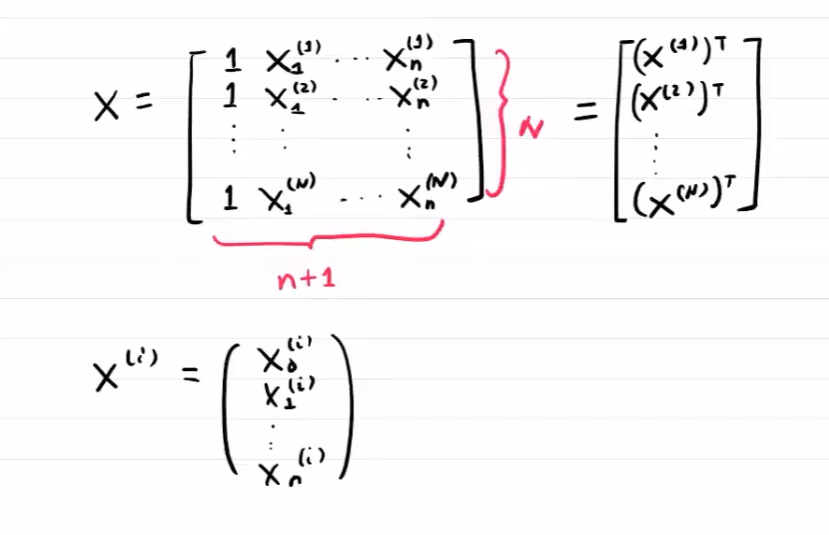 X = [ 1 X₁⁽¹⁾ ... Xₙ⁽¹⁾ ; 1 X₁⁽²⁾ ... Xₙ⁽²⁾ ; ⋮ ⋮ ⋮ ; 1 X₁⁽ᴺ⁾ ... Xₙ⁽ᴺ⁾ ] } N = [ (X⁽¹⁾)ᵀ ; (X⁽²⁾)ᵀ ; ⋮ ; (X⁽ᴺ⁾)ᵀ ]
n+1
X⁽ⁱ⁾ = ( X₀⁽ⁱ⁾ ; X₁⁽ⁱ⁾ ; ⋮ ; Xₙ⁽ⁱ⁾ )